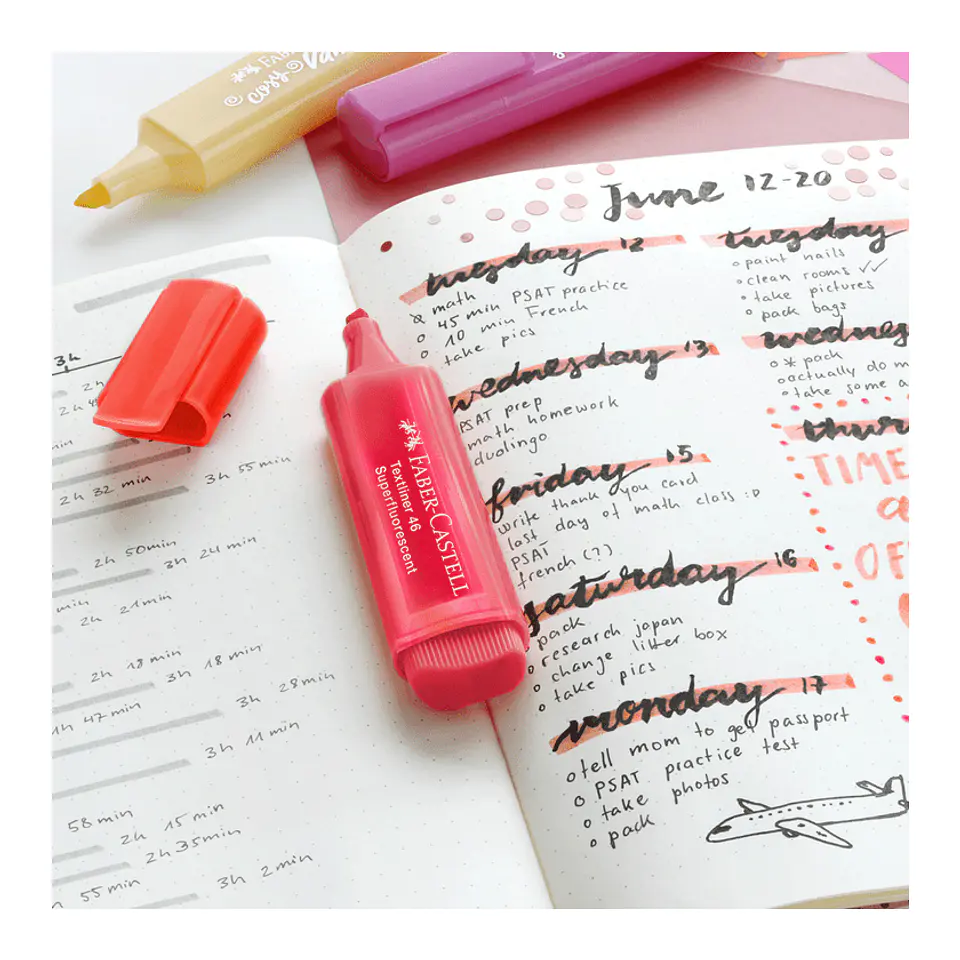 FABER
cosy
June 12-20
tuesday 12
math
45 min PSAT practice
10 min French
take pics
wednesday 13
PSAT prep
math homework
duolingo
friday 15
write thank you card
last day of math class :D
PSAT
french (?)
saturday 16
pack
research japan
change litter box
take pics
monday 17
tell mom to get passport
PSAT practice test
take photos
pack
tuesday
paint nails
clean rooms ✓✓
take pictures
pack bags
wednes
* pack
actually do m
take some a
thur
TIME
OF
FABER-CASTELL
Textliner 46
Superfluorescent
3h
2h
2h
3h 55 min
2h 32 min
2h 50min
3h 24 min
min
2h 21min
2h 18 min
3h 18 min
3h 28min
1h 47 min
3h 11 min
58 min
2h 15 min
2h 35min
3h 2min
55 min